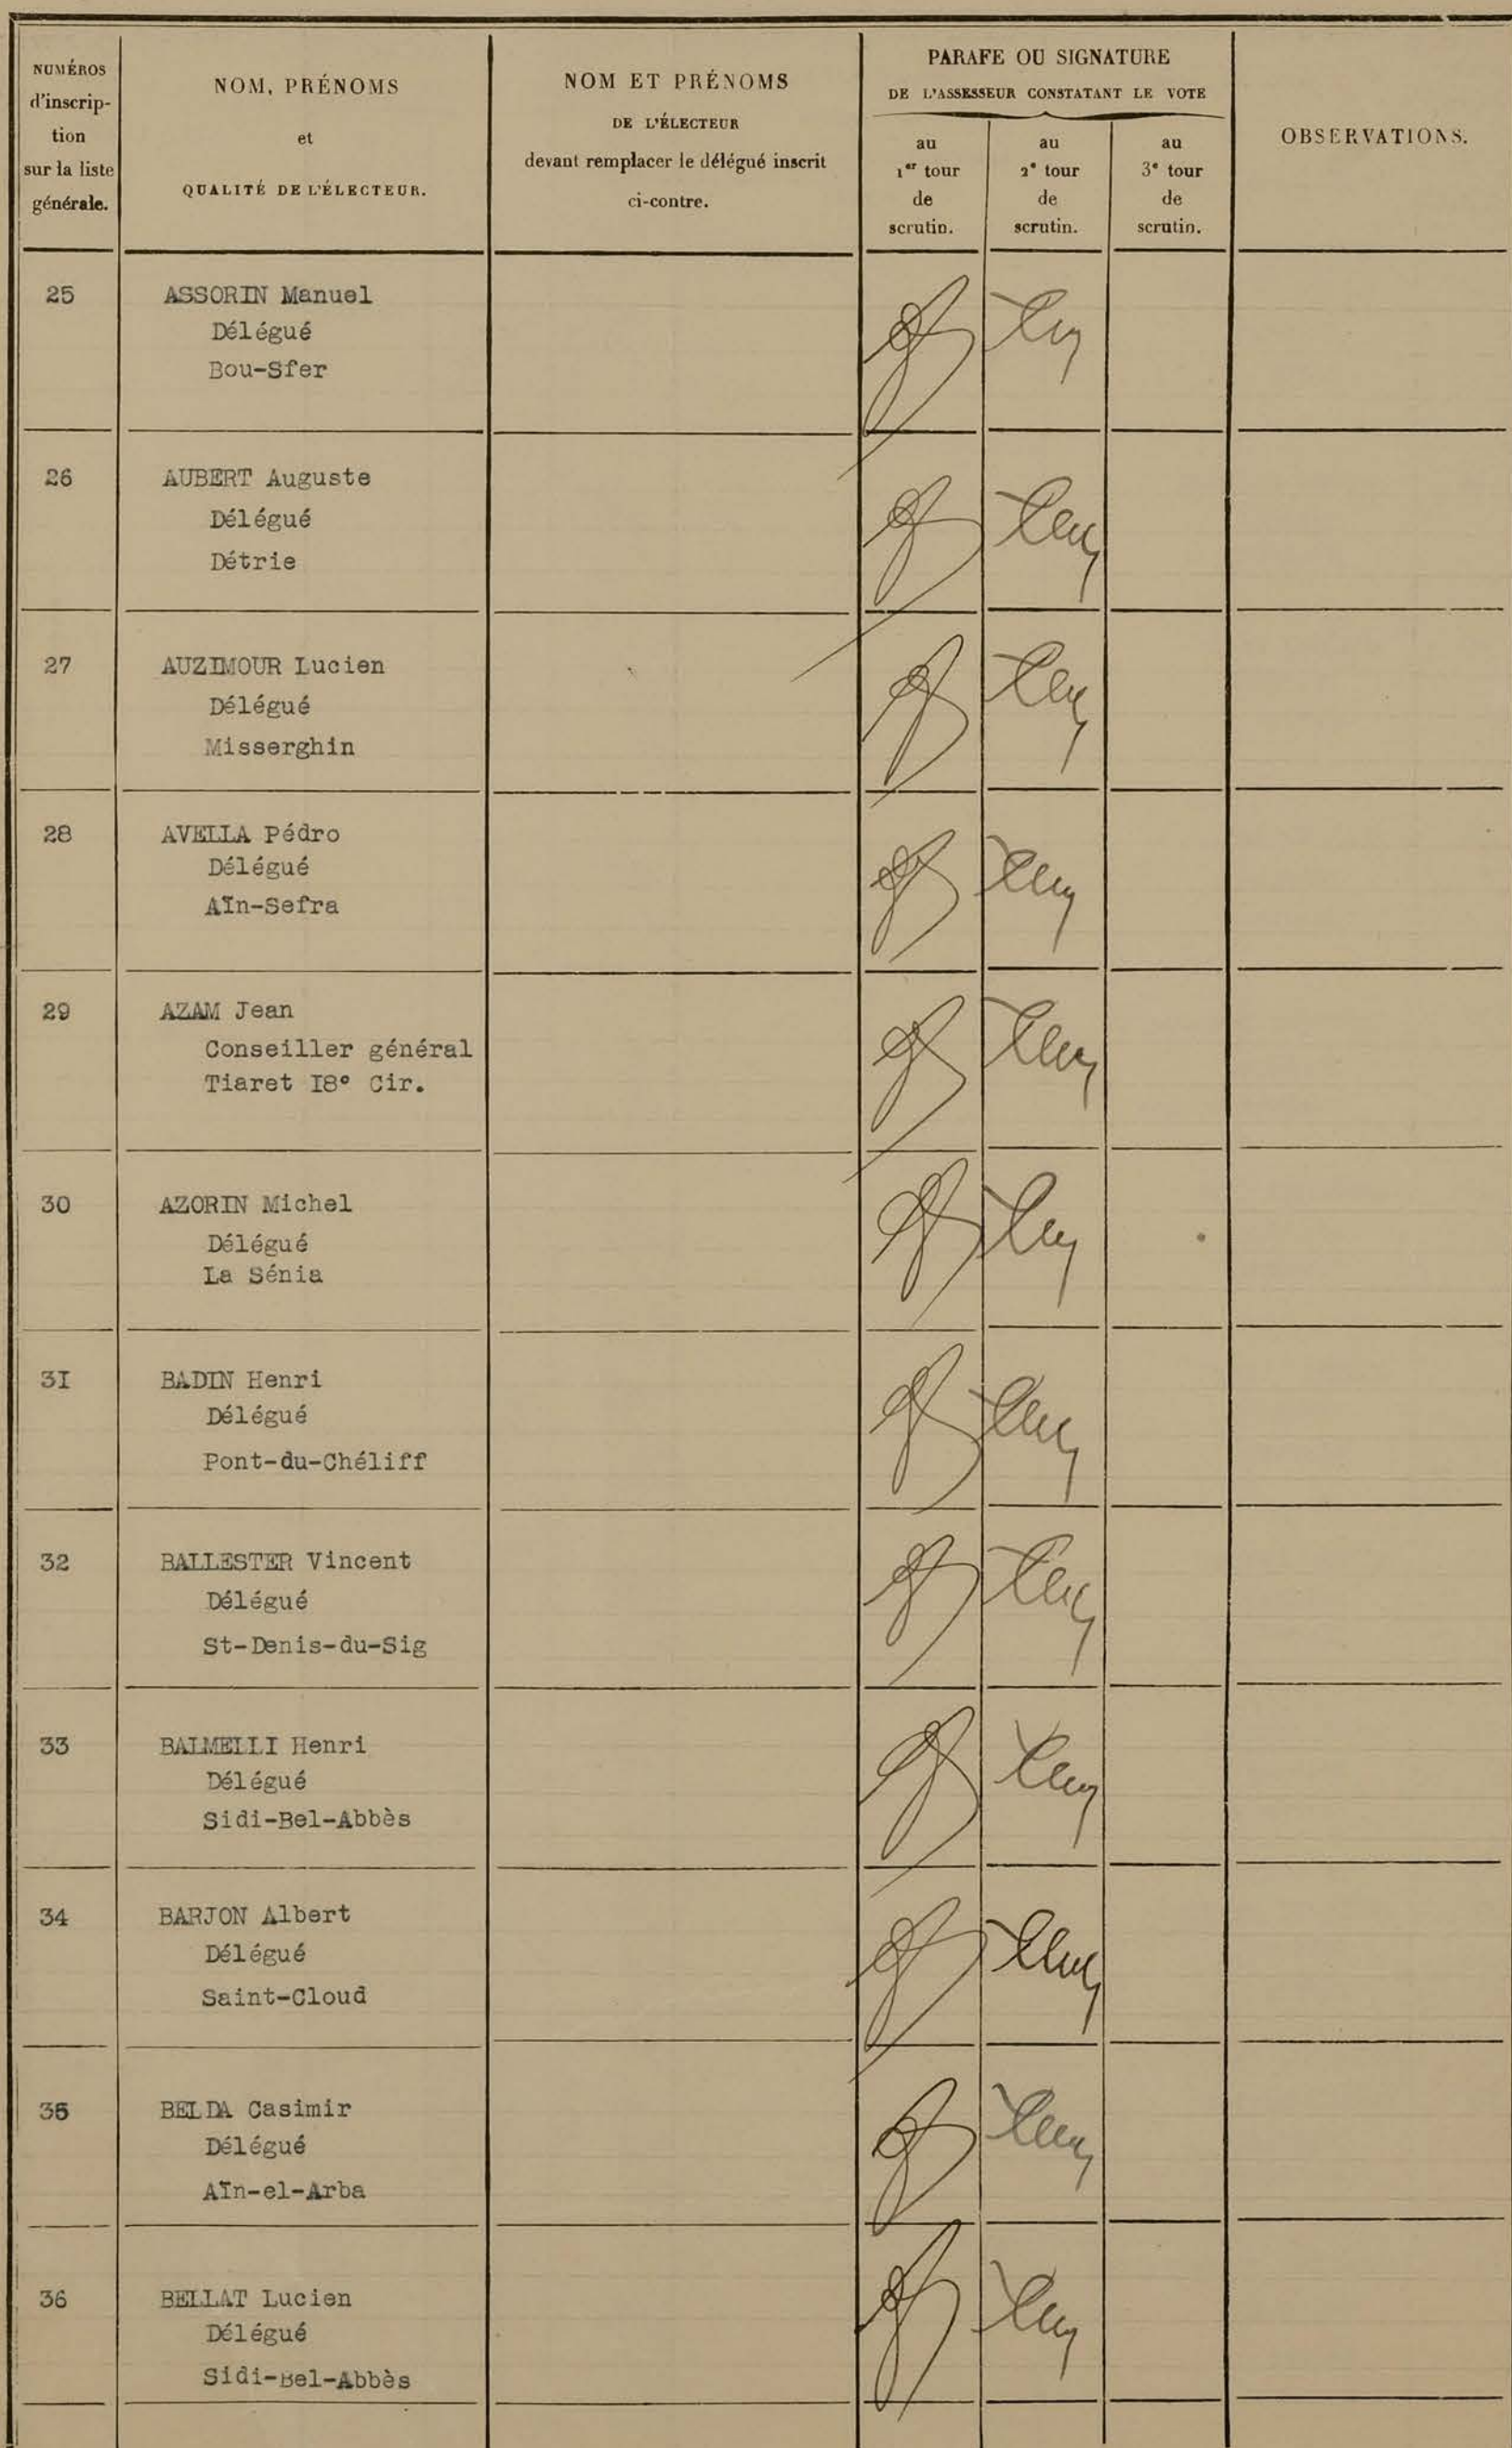 NUMÉROS
d'inscrip-
tion
sur la liste
générale.
NOM, PRÉNOMS
et
QUALITÉ DE L'ÉLECTEUR.
NOM ET PRÉNOMS
DE L'ÉLECTEUR
devant remplacer le délégué inscrit
ci-contre.
PARAFE OU SIGNATURE
DE L'ASSESSEUR CONSTATANT LE VOTE
au
1er tour
de
scrutin.
au
2e tour
de
scrutin.
au
3e tour
de
scrutin.
OBSERVATIONS.
25
ASSORIN Manuel
Délégué
Bou-Sfer
26
AUBERT Auguste
Délégué
Détrie
27
AUZIMOUR Lucien
Délégué
Misserghin
28
AVELLA Pédro
Délégué
Aïn-Sefra
29
AZAM Jean
Conseiller général
Tiaret I8° Cir.
30
AZORIN Michel
Délégué
La Sénia
3I
BADIN Henri
Délégué
Pont-du-Chéliff
32
BALLESTER Vincent
Délégué
St-Denis-du-Sig
33
BALMELLI Henri
Délégué
Sidi-Bel-Abbès
34
BARJON Albert
Délégué
Saint-Cloud
35
BELDA Casimir
Délégué
Aïn-el-Arba
36
BELLAT Lucien
Délégué
Sidi-Bel-Abbès